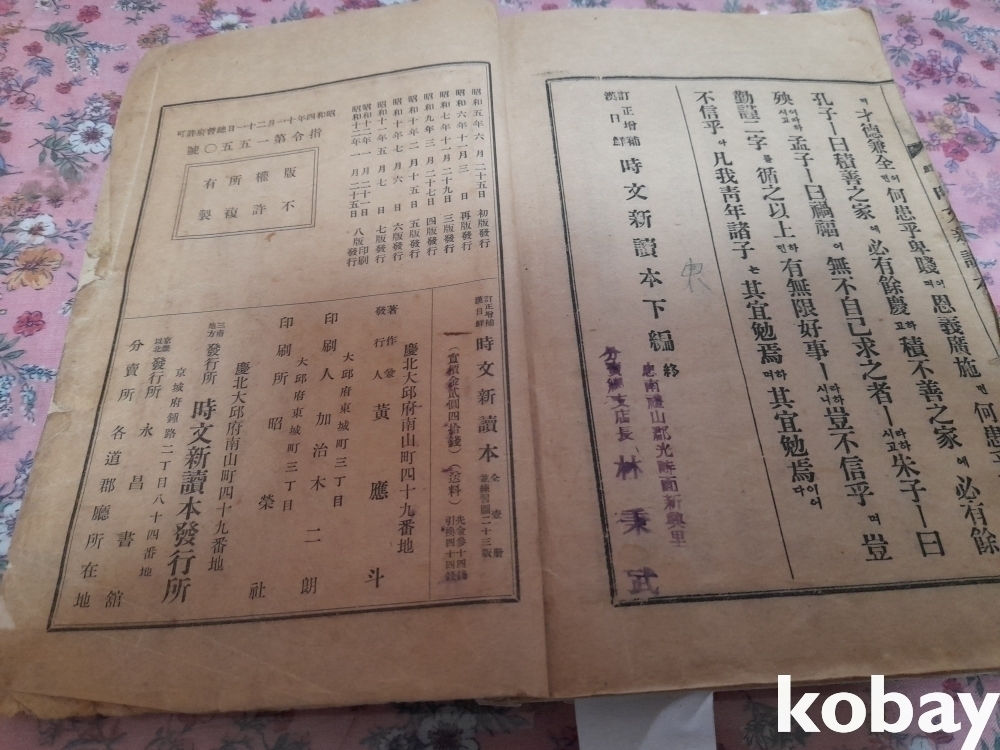 才德兼全인이 何患乎卑賤이며 恩義廣施면 何患乎
孔子ㅣ曰積善之家에 必有餘慶하고 積不善之家에 必有餘
殃이라하시고 孟子ㅣ曰禍福이 無不自己求之者ㅣ라하시고 朱子ㅣ曰
勤謹二字를 循之以上인하 有無限好事ㅣ라하시니 豈不信乎며 豈
不信乎아 凡我靑年諸子는 其宜勉焉하며 其宜勉焉이어다
訂正增補 漢日鮮 時文新讀本下編 終
忠南禮山郡光時面新興里
支店長 林秉武
昭和四年十一月二十一日總督府許可
指令第一五五〇號
版權所有
不許複製
昭和五年六月二十五日 初版發行
昭和六年十一月三日 再版發行
昭和七年十二月二十九日 三版發行
昭和九年三月二十七日 四版發行
昭和十年二月十五日 五版發行
昭和十年七月六日 六版發行
昭和十一年五月七日 七版發行
昭和十二年一月二十一日印刷
昭和十二年一月二十五日八版發行
訂正增補 漢日鮮 時文新讀本 全壹冊
(實價金貳圓四拾錢)(送料)
慶北大邱府南山町四十九番地
著作兼發行人 黃應斗
大邱府東城町三丁目
印刷人 加治木二朗
大邱府東城町三丁目
印刷所 昭榮社
慶北大邱府南山町四十九番地
三南地方 發行所 時文新讀本發行所
京城府鍾路二丁目八十四番地
京畿以北 發行所 永昌書舘
分賣所 各道郡廳所在地
kobay